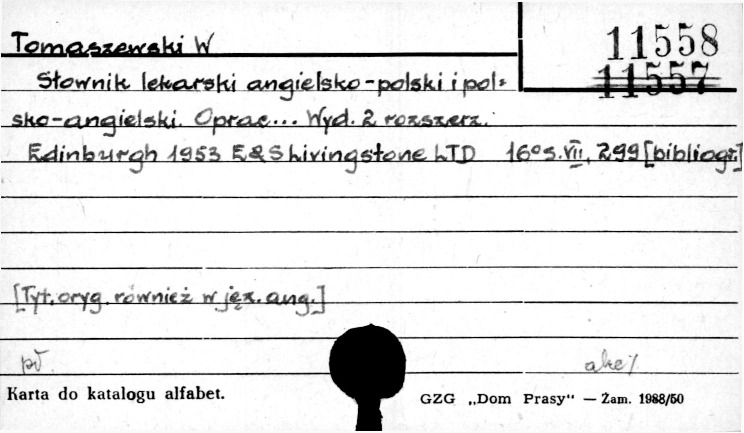 Tomaszewski W
11558
11557
Słownik lekarski angielsko-polski i pol=
sko-angielski. Oprac... Wyd. 2 rozszerz.
Edinburgh 1953 E&S Livingstone LTD 16° s. VII, 299 [bibliogr.]
[Tyt. oryg. również w jęz. ang.]
Karta do katalogu alfabet.
GZG „Dom Prasy" — Żam. 1988/50